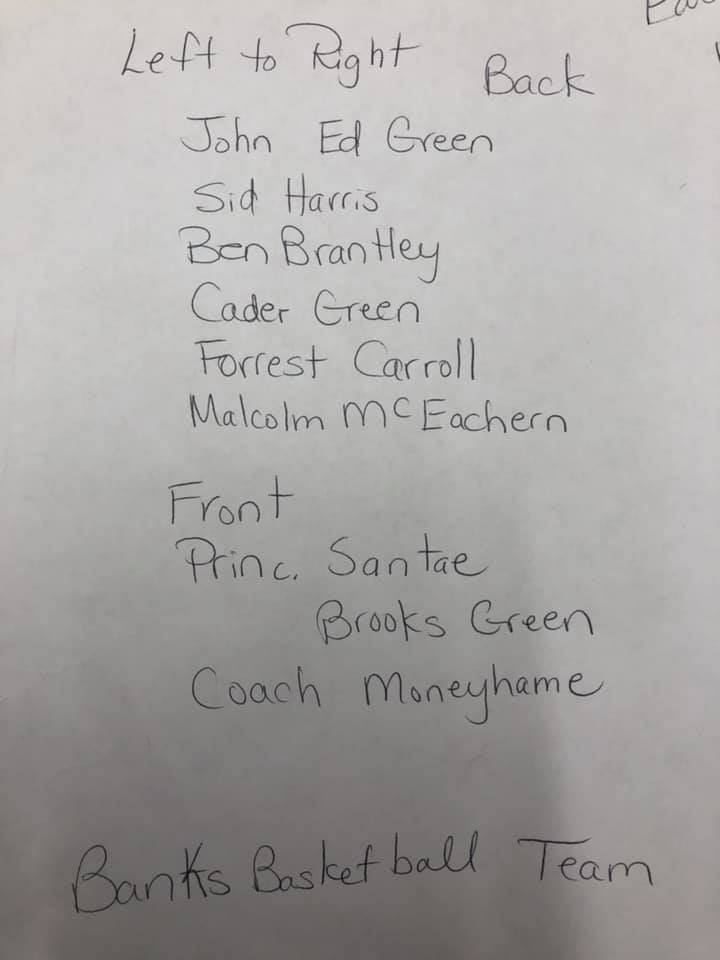 Left to Right Back
John Ed Green
Sid Harris
Ben Brantley
Cader Green
Forrest Carroll
Malcolm McEachern
Front
Princ. Santae
Brooks Green
Coach Moneyhame
Banks Basketball Team